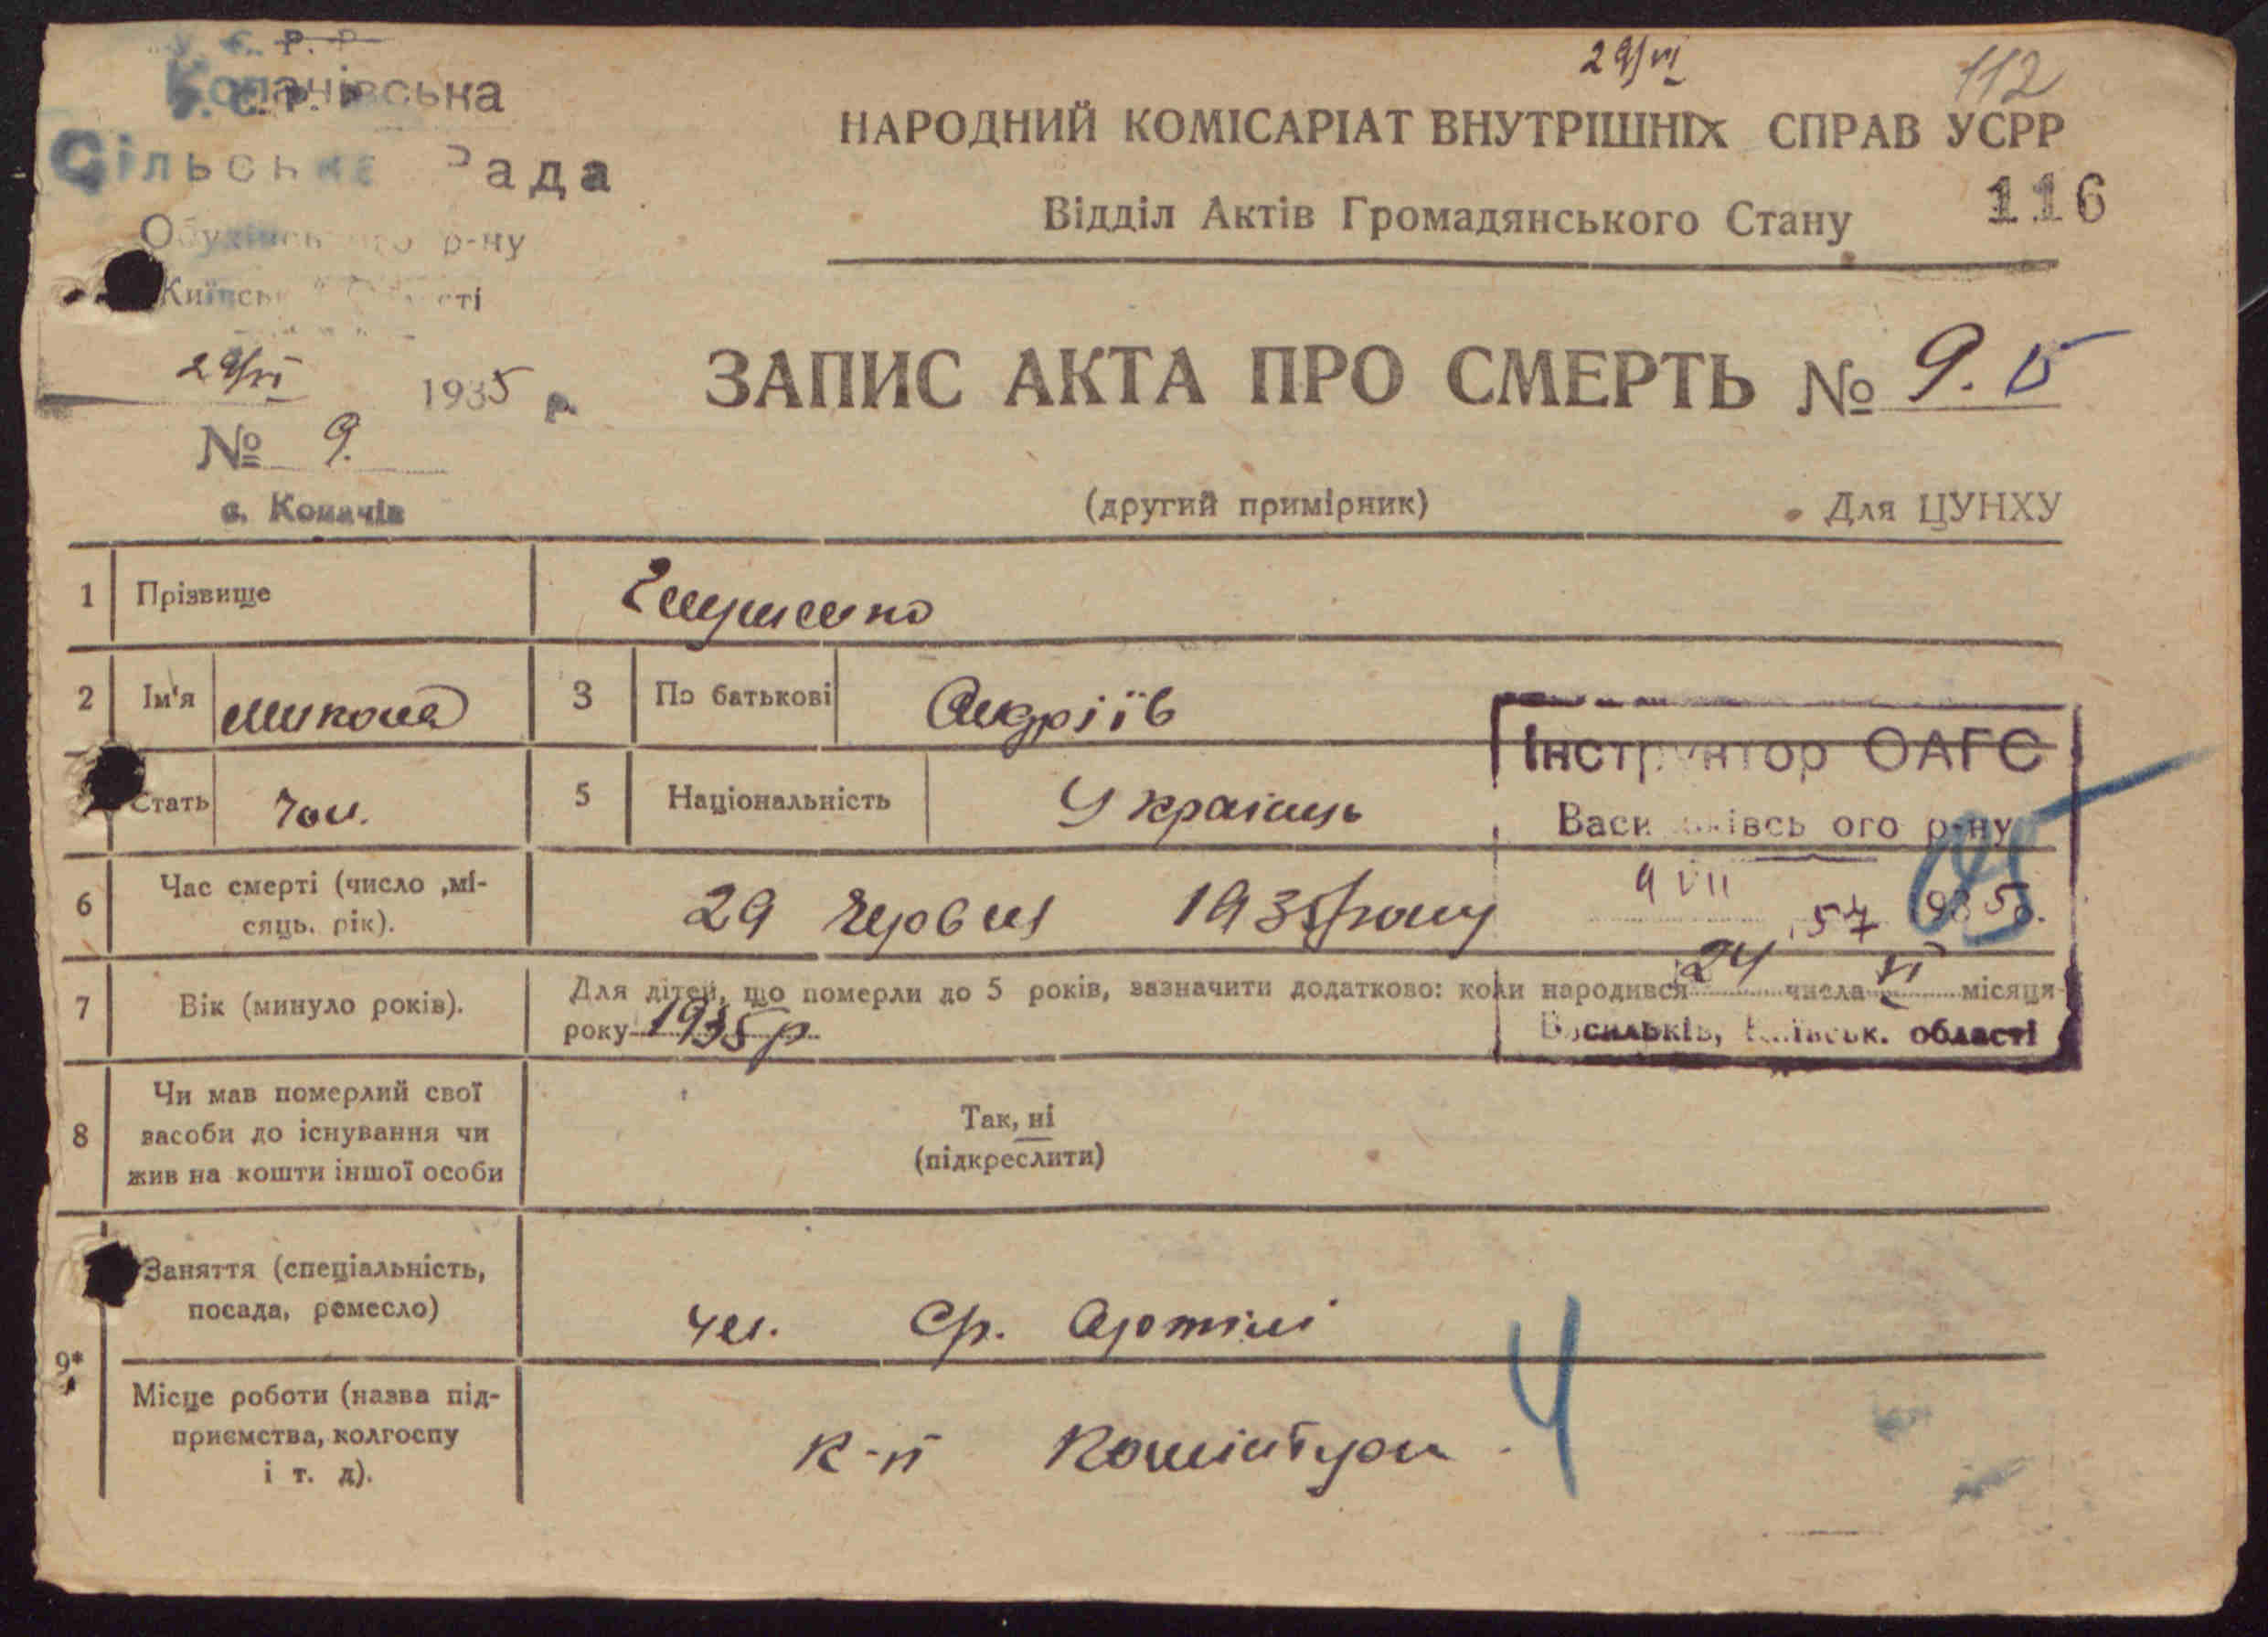 У. С. Р. Р.
Копачівська
Сільська Рада
Обухівського р-ну
Київської Області
29/VI 1935 р.
№ 9.
с. Копачів
29/VI
112
НАРОДНИЙ КОМІСАРІАТ ВНУТРІШНІХ СПРАВ УСРР
Відділ Актів Громадянського Стану
116
ЗАПИС АКТА ПРО СМЕРТЬ № 9.
(другий примірник)
Для ЦУНХУ
1 Прізвище
2 Ім'я Микола 3 По батькові Андріїв
Стать чол. 5 Національність Українць
Інструктор ОАГС
Васильківського р-ну
9 VII 57 1935р.
Васильків, Київськ. області
6 Час смерті (число ,мі-
сяць. рік).
29 червня 1935 року
7 Вік (минуло років).
Для дітей, що померли до 5 років, зазначити додатково: коли народився 24 числа VI місяця
року 1935 р
8 Чи мав померлий свої
засоби до існування чи
жив на кошти іншої особи
Так, ні
(підкреслити)
9*
Заняття (спеціальність,
посада, ремесло)
чл. Ср. Артілі
Місце роботи (назва під-
приємства, колгоспу
і т. д).
к-п Комінтерн
4